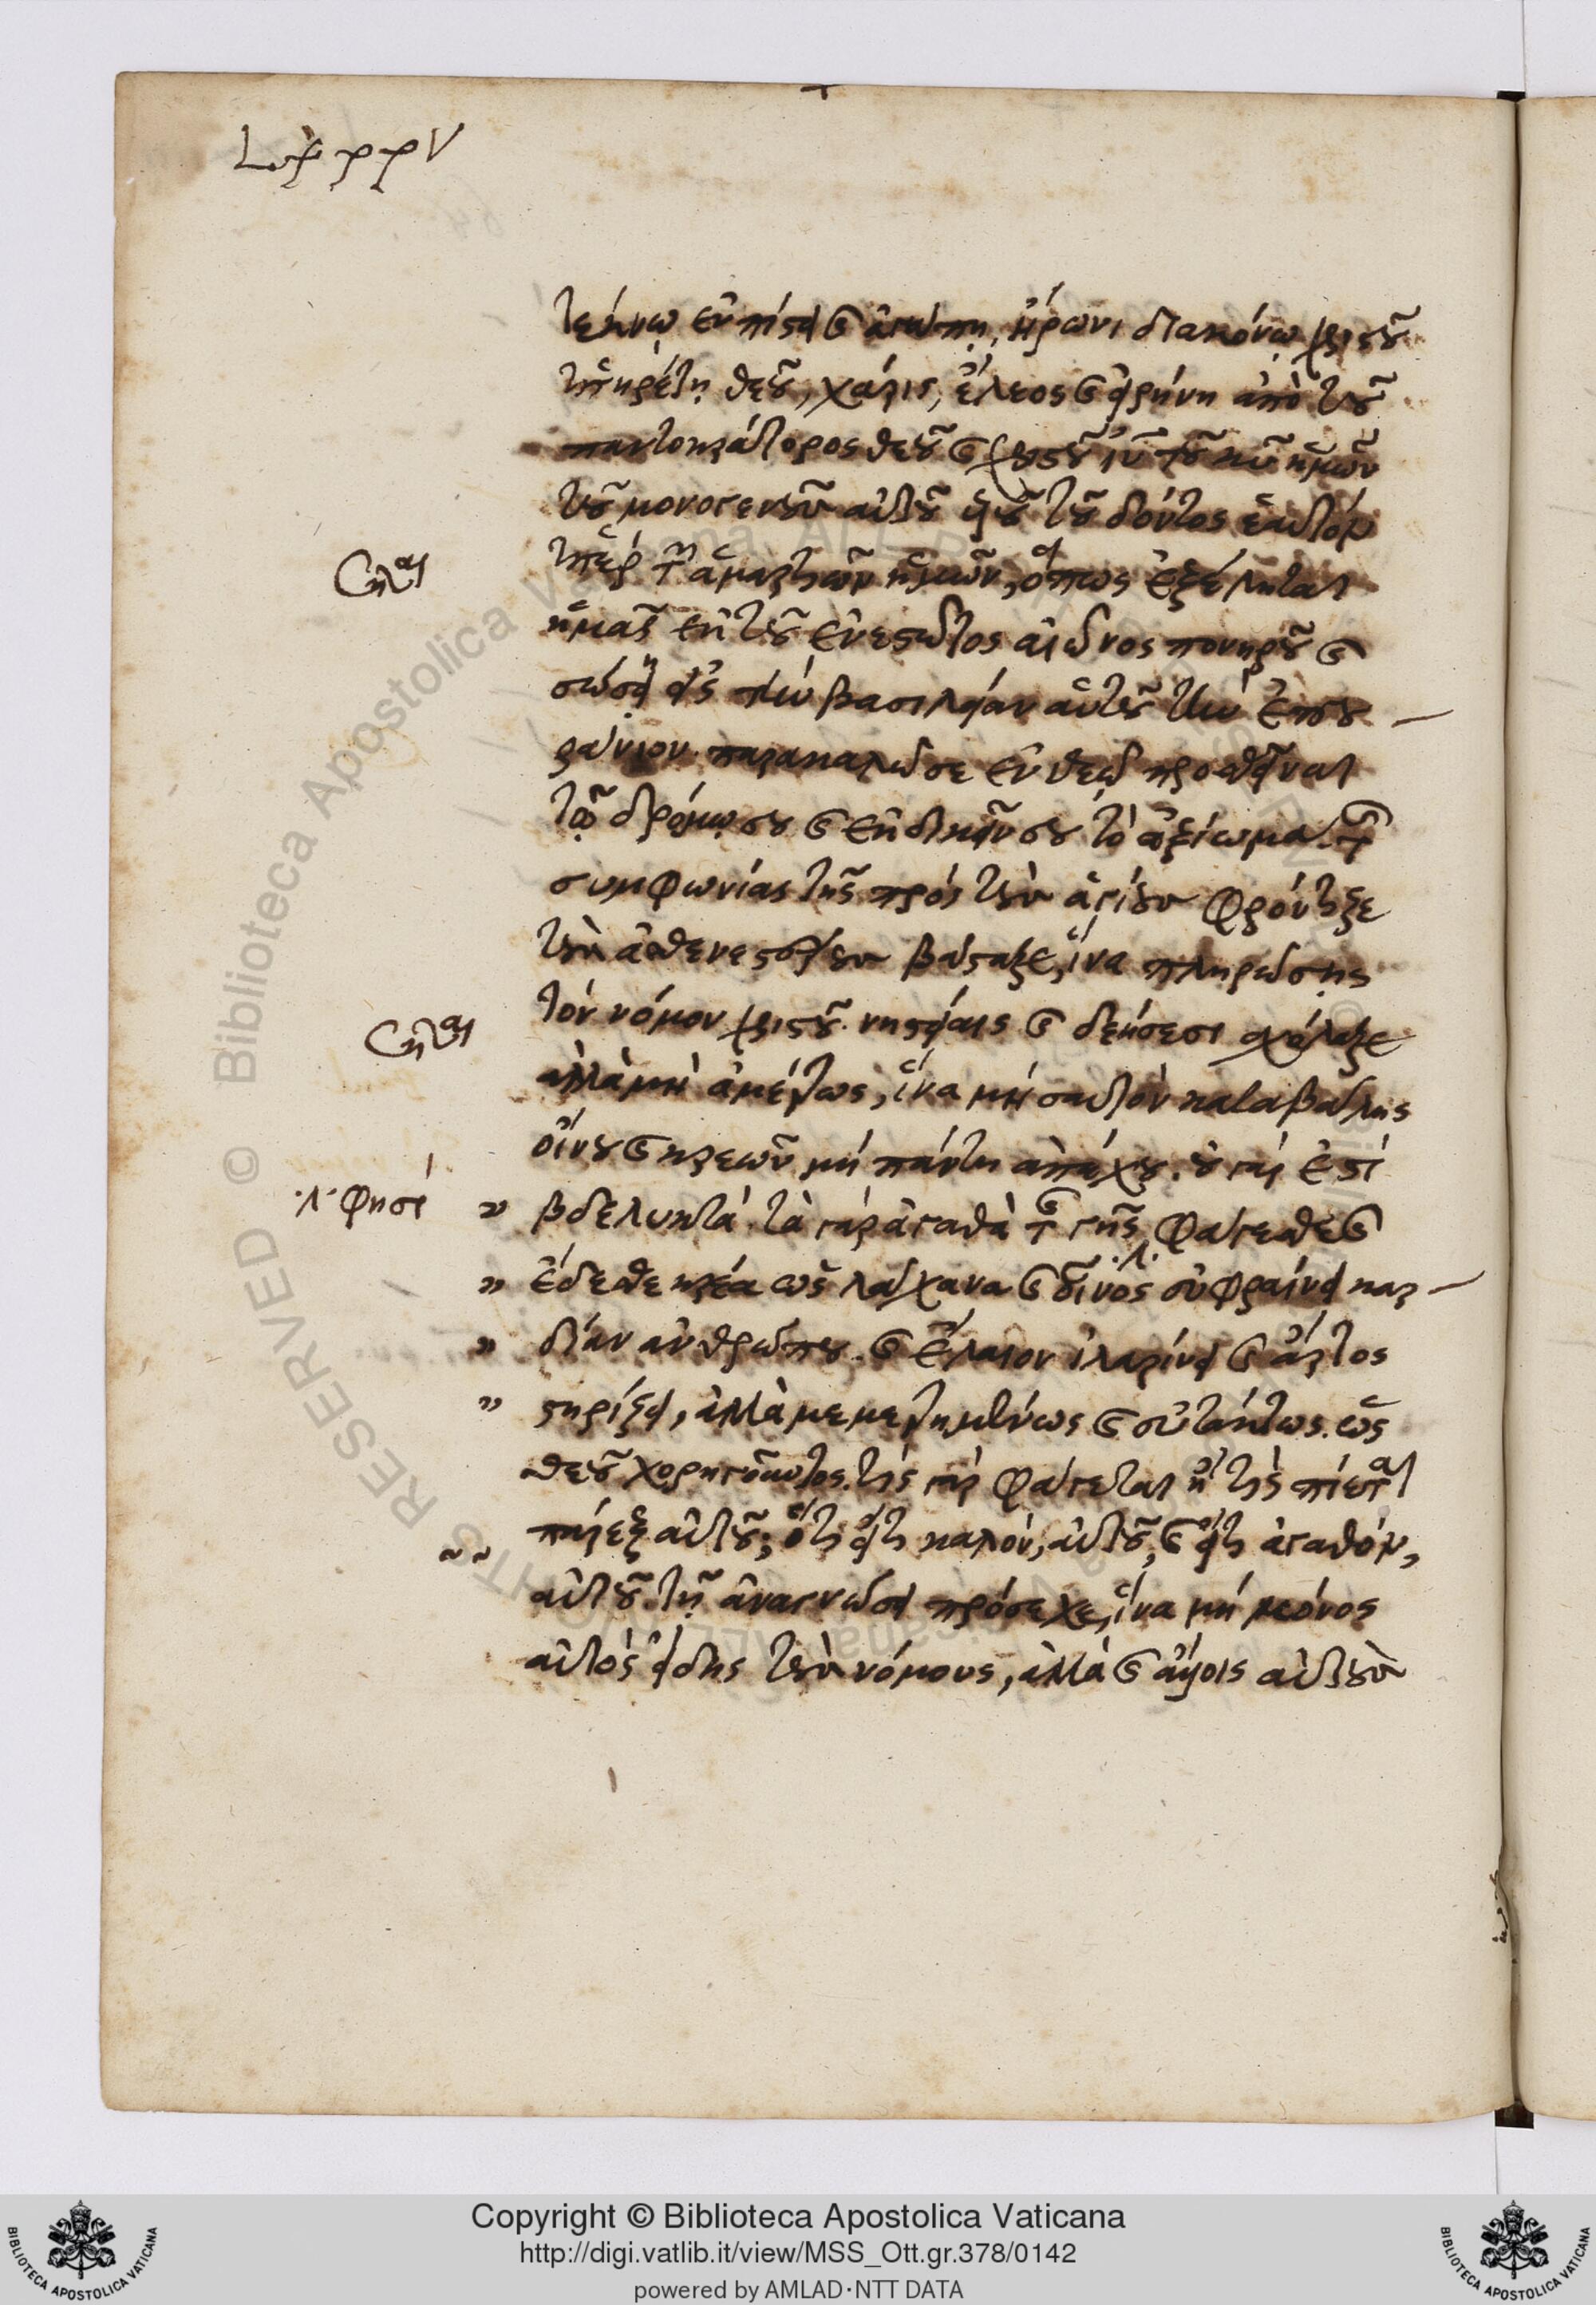 Lxxxv
τέκνῳ ἐν πίστει καὶ ἀγάπῃ, ἥρωνι διακόνῳ χριστοῦ
ὑπηρέτῃ θεοῦ, χάρις, ἔλεος καὶ εἰρήνη ἀπὸ τοῦ
παντοκράτορος θεοῦ καὶ χριστοῦ ἰυ τοῦ κυ ἡμῶν
τοῦ μονογενοῦς αὐτοῦ υἱοῦ τοῦ δόντος ἑαυτὸν
ὑπὲρ τῶν ἁμαρτιῶν ἡμῶν, ὅπως ἐξέληται
ἡμᾶς ἐκ τοῦ ἐνεστῶτος αἰῶνος πονηροῦ καὶ
σώσει εἰς τὴν βασιλείαν αὐτοῦ τὴν ἐπου
ράνιον. παρακαλῶ σε ἐν θεῷ προσθεῖναι
τῷ δρόμῳ σου καὶ ἐκδικεῖν σου τὸ ἀξίωμα. τῆς
συμφωνίας τῆς πρὸς τοὺς ἁγίους φρόντιζε
τοὺς ἀσθενεστέρους βάσταζε, ἵνα πληρώσῃς
τὸν νόμον χριστοῦ. νηστείαις καὶ δεήσεσι σχόλαζε
ἀλλὰ μὴ ἀμέτρως, ἵνα μὴ σαυτὸν καταβάλῃς
οἴνου καὶ κρεῶν μὴ πάντη ἀπέχου. οὐ γάρ ἐστι
·λ· φησί βδελυκτά. τὰ γὰρ ἀγαθὰ τῆς γῆς φάγεσθε καὶ
ἔδεσθε κρέα ὡς λάχανα καὶ οἶνος εὐφραίνει καρ
δίαν ἀνθρώπου. καὶ ἔλαιον ἱλαρύνει καὶ ἄρτος
στηρίζει, ἀλλὰ μεμετρημένως καὶ εὐτάκτως. ὡς
θεοῦ χορηγοῦντος. τίς γὰρ φάγεται ἢ τίς πίεται
παρὲξ αὐτοῦ; ὅτι εἴ τι καλόν, αὐτοῦ, καὶ εἴ τι ἀγαθόν,
αὐτοῦ. τῇ ἀναγνώσει πρόσεχε, ἵνα μὴ μόνος
αὐτὸς εἰδῇς τοὺς νόμους, ἀλλὰ καὶ ἄλλοις αὐτοὺς
Copyright © Biblioteca Apostolica Vaticana
http://digi.vatlib.it/view/MSS_Ott.gr.378/0142
powered by AMLAD·NTT DATA
BIBLIOTECA APOSTOLICA VATICANA
BIBLIOTECA APOSTOLICA VATICANA